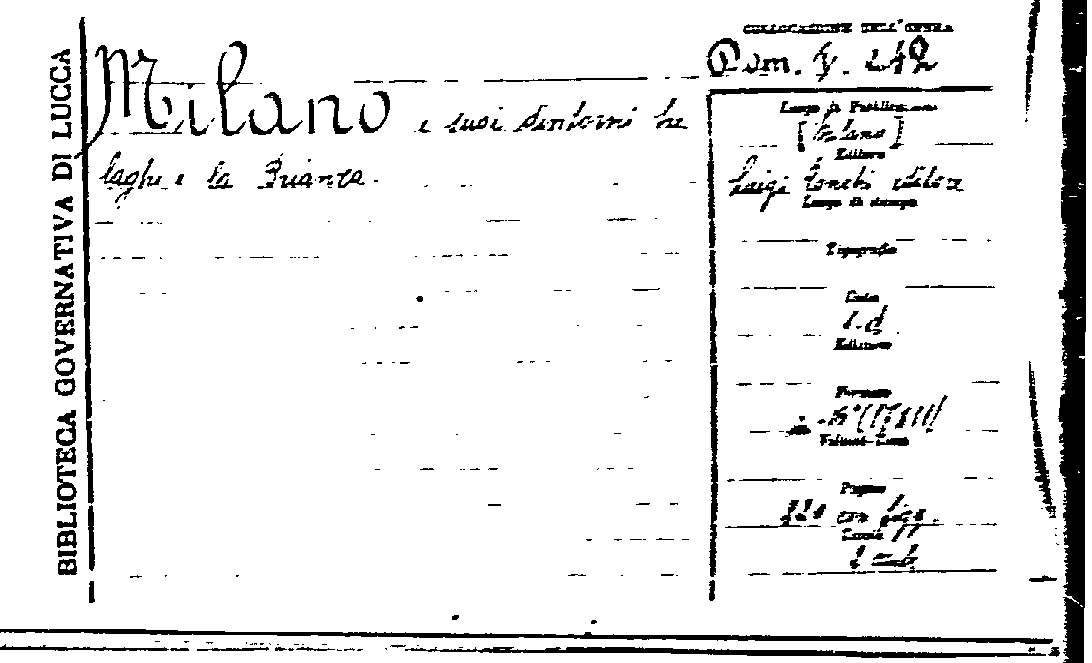 BIBLIOTECA GOVERNATIVA DI LUCCA
Milano e suoi dintorni tre
laghi e la Brianza
COLLOCAZIONE DELL'OPERA
Luogo di Pubblicazione
[Milano]
Editore
Luigi Ronchi editore
Luogo di stampa
Tipografia
Data
s.d
Edizione
Formato
Volumi-Tomi
Pagine
con figg.
Tavole